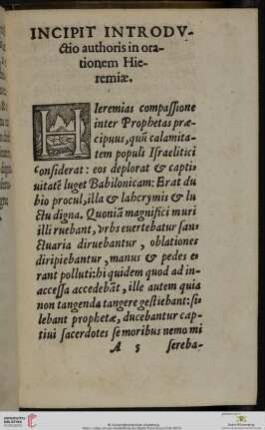 INCIPIT INTRODV-
ctio authoris in ora-
tionem Hie-
remiæ.
HIeremias compaſſione
inter Prophetas præ-
cipuus, quũ calamita-
tem populi Iſraelitici
conſiderat: eos deplorat & capti-
uitatẽ luget Babilonicam: Erat du
bio procul, illa & lahcrymis & lu
ctu digna. Quoniã magnifici muri
illi ruebant, vrbs euertebatur ſan-
ctuaria diruebantur, oblationes
diripiebantur, manus & pedes e-
rant polluti: hi quidem quod ad in-
acceſſa accedebãt, ille autem quia
non tangenda tangere geſtiebant: ſi-
lebant prophetæ, ducebantur cap-
tiui ſacerdotes ſe moribus nemo mi
A 5 ſereba-